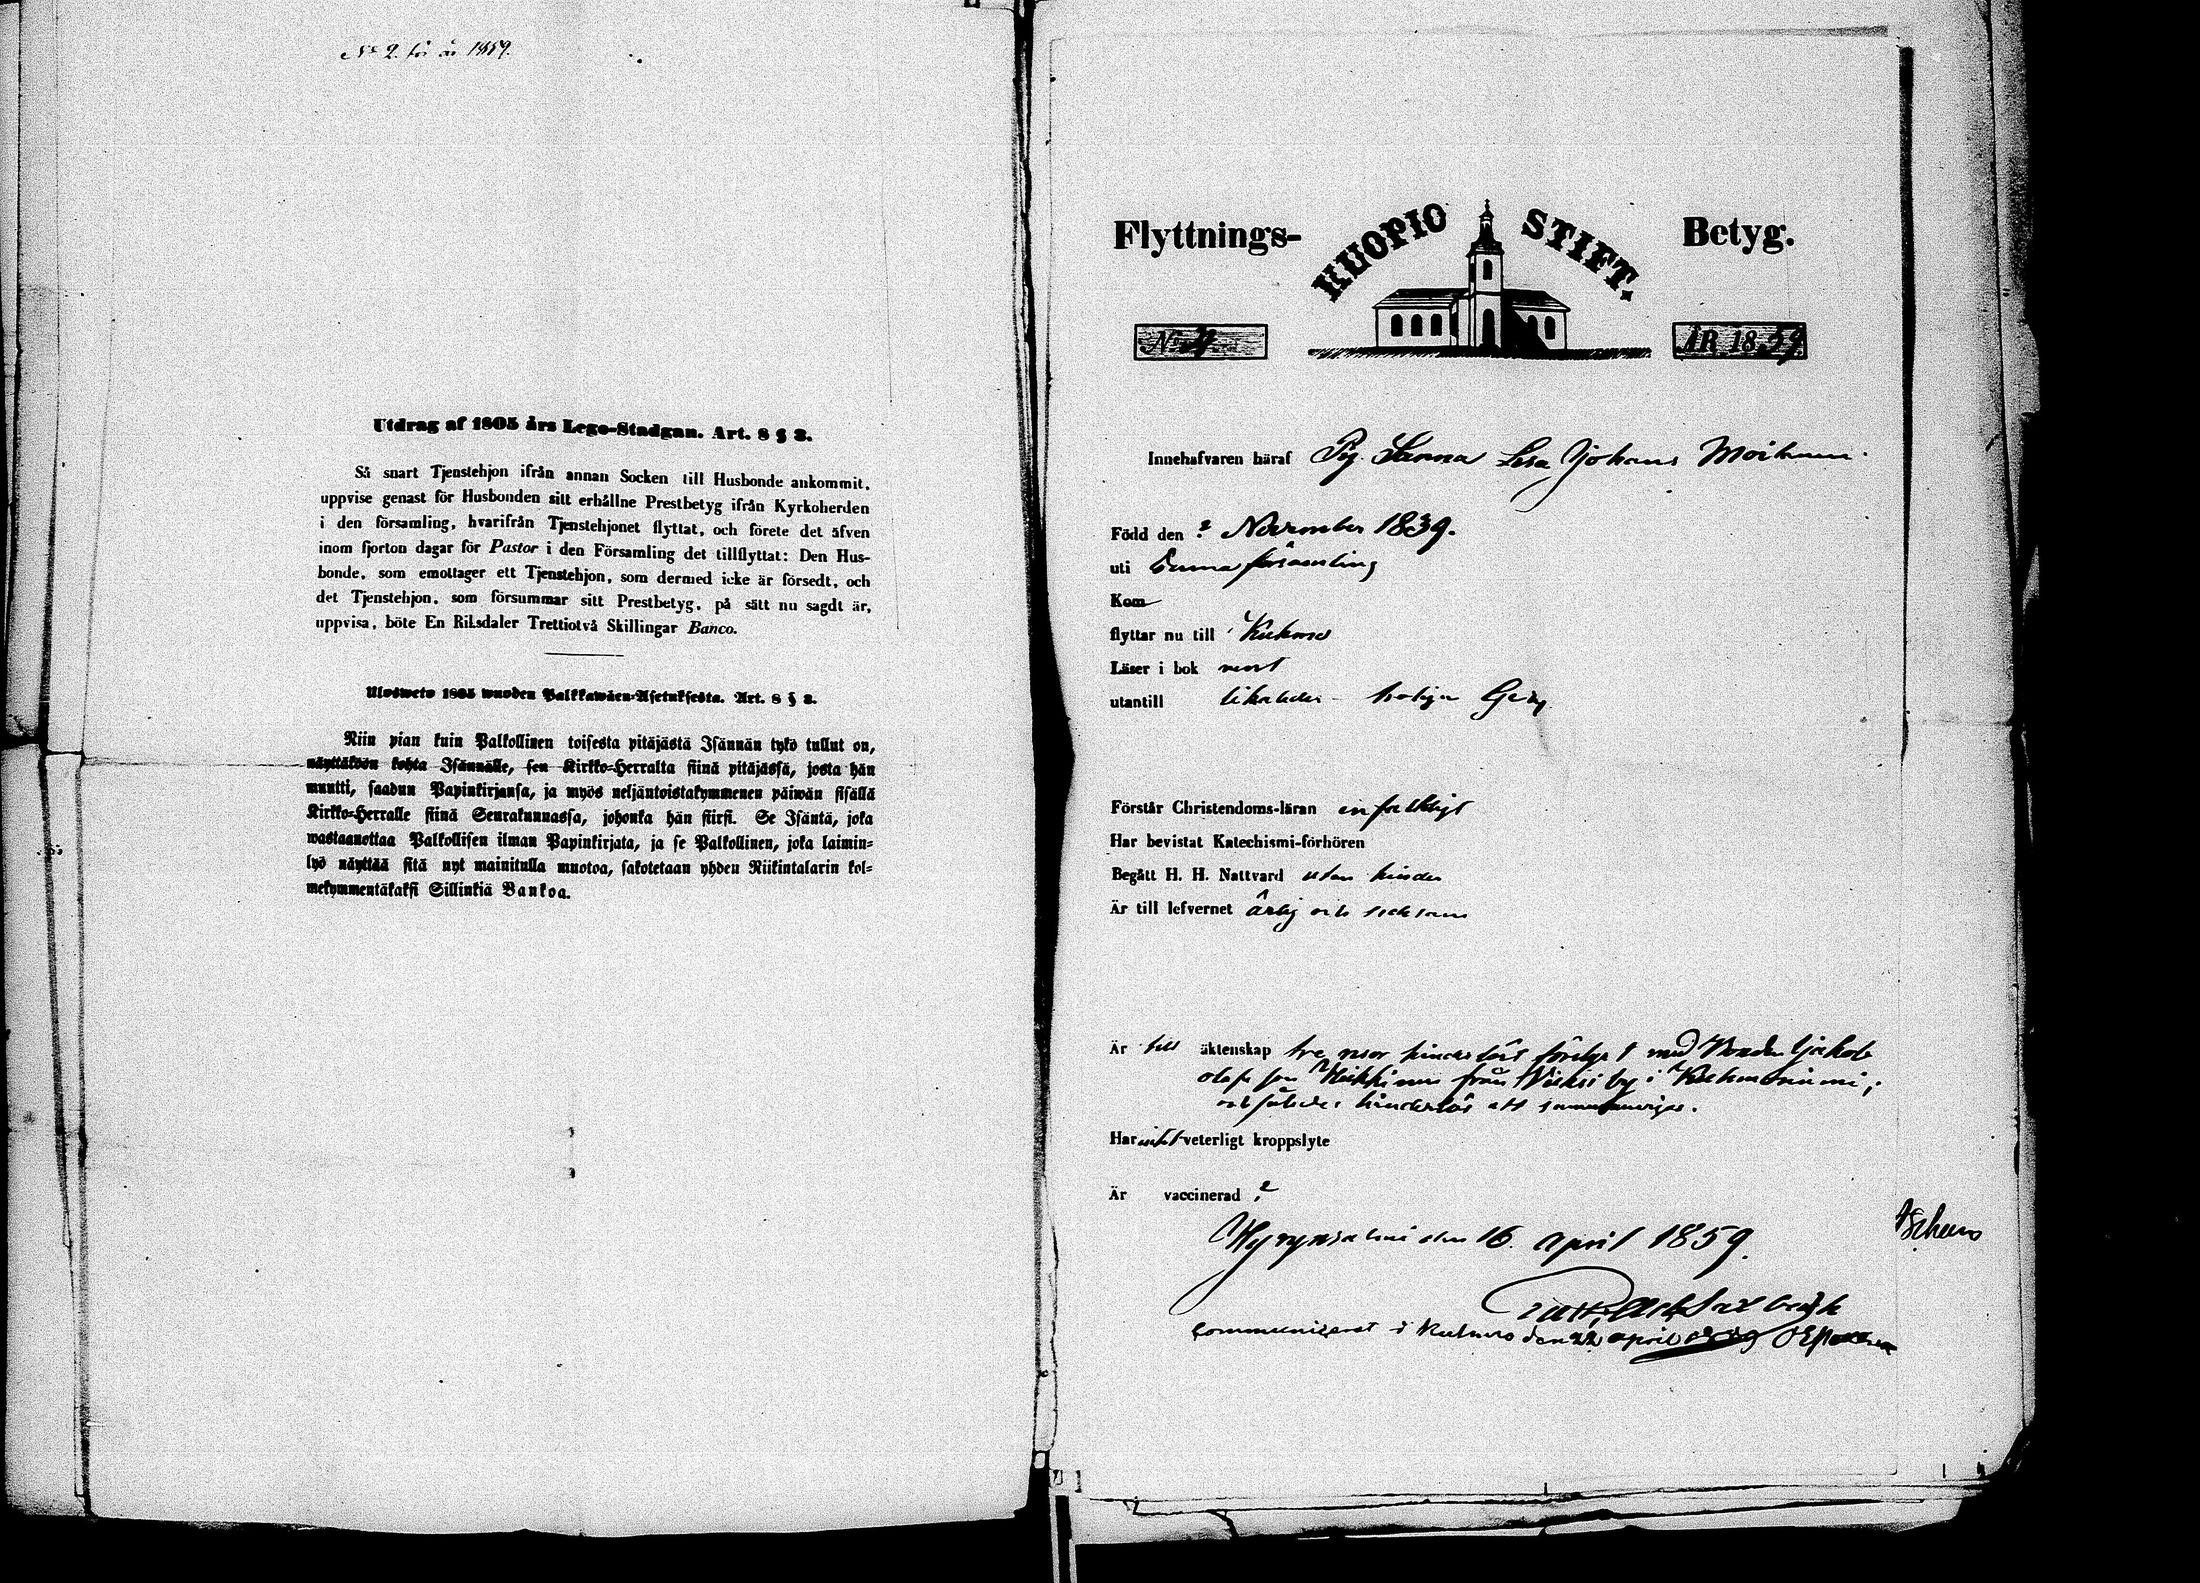 No 2 för år 1859.
Utdrag af 1805 års Lego-Stadgan. Art. 8 § 3.
Så snart Tjenstehjon ifrån annan Socken till Husbonde ankommit,
uppvise genast för Husbonden sitt erhållne Prestbetyg ifrån Kyrkoherden
i den församling, hvarifrån Tjenstehjonet flyttat, och förete det äfven
inom fjorton dagar för Pastor i den Församling det tillflyttat: Den Hus-
bonde, som emottager ett Tjenstehjon, som dermed icke är försedt, och
det Tjenstehjon, som försummar sitt Prestbetyg, på sätt nu sagdt är,
uppvisa, böte En Riksdaler Trettiotvå Skillingar Banco.
Ulosweto 1805 wuoden Palkkawäen-Asetuksesta. Art. 8 § 3.
Niin pian kuin Palkollinen toisesta pitäjästä Isännän tykö tullut on,
näyttäköön kohta Isännälle, sen Kirkko-Herralta siinä pitäjässä, josta hän
muutti, saadun Papinkirjansa, ja myös neljäntoistakymmenen päiwän sisällä
Kirkko-Herralle siinä Seurakunnassa, johonka hän siirsi. Se Isäntä, joka
wastaanottaa Palkollisen ilman Papinkirjata, ja se Palkollinen, joka laimin-
lyö näyttää sitä nyt mainitulla muotoa, sakotetaan yhden Riikintalarin kol-
mekymmentäkaksi Sillinkiä Bankoa.
Flyttnings- KUOPIO STIFT. Betyg.
No ÅR 1859
Innehafvaren häraf Pig. Sanna Lisa Johans Moilanen
Född den ? November 1839.
uti denna församling
Kom
flyttar nu till Kuhmo
Läser i bok rent
utantill likaledes
Förstår Christendoms-läran enfalldigt
Har bevistat Katechismi-förhören
Begått H. H. Nattvard utan hinder
Är till lefvernet ärlig och
Är till äktenskap tre resor hinderslöst förelyst med Bonden Jakob
Olofs son Heikkinen från Vieksi by i Kuhmoniemi;
och således hinderlös att sammanvigas.
Har intet veterligt kroppslyte
Är vaccinerad ?
Hyrynsalmi den 16. april 1859.
Communicerat i Kuhmo den 22 april 1859